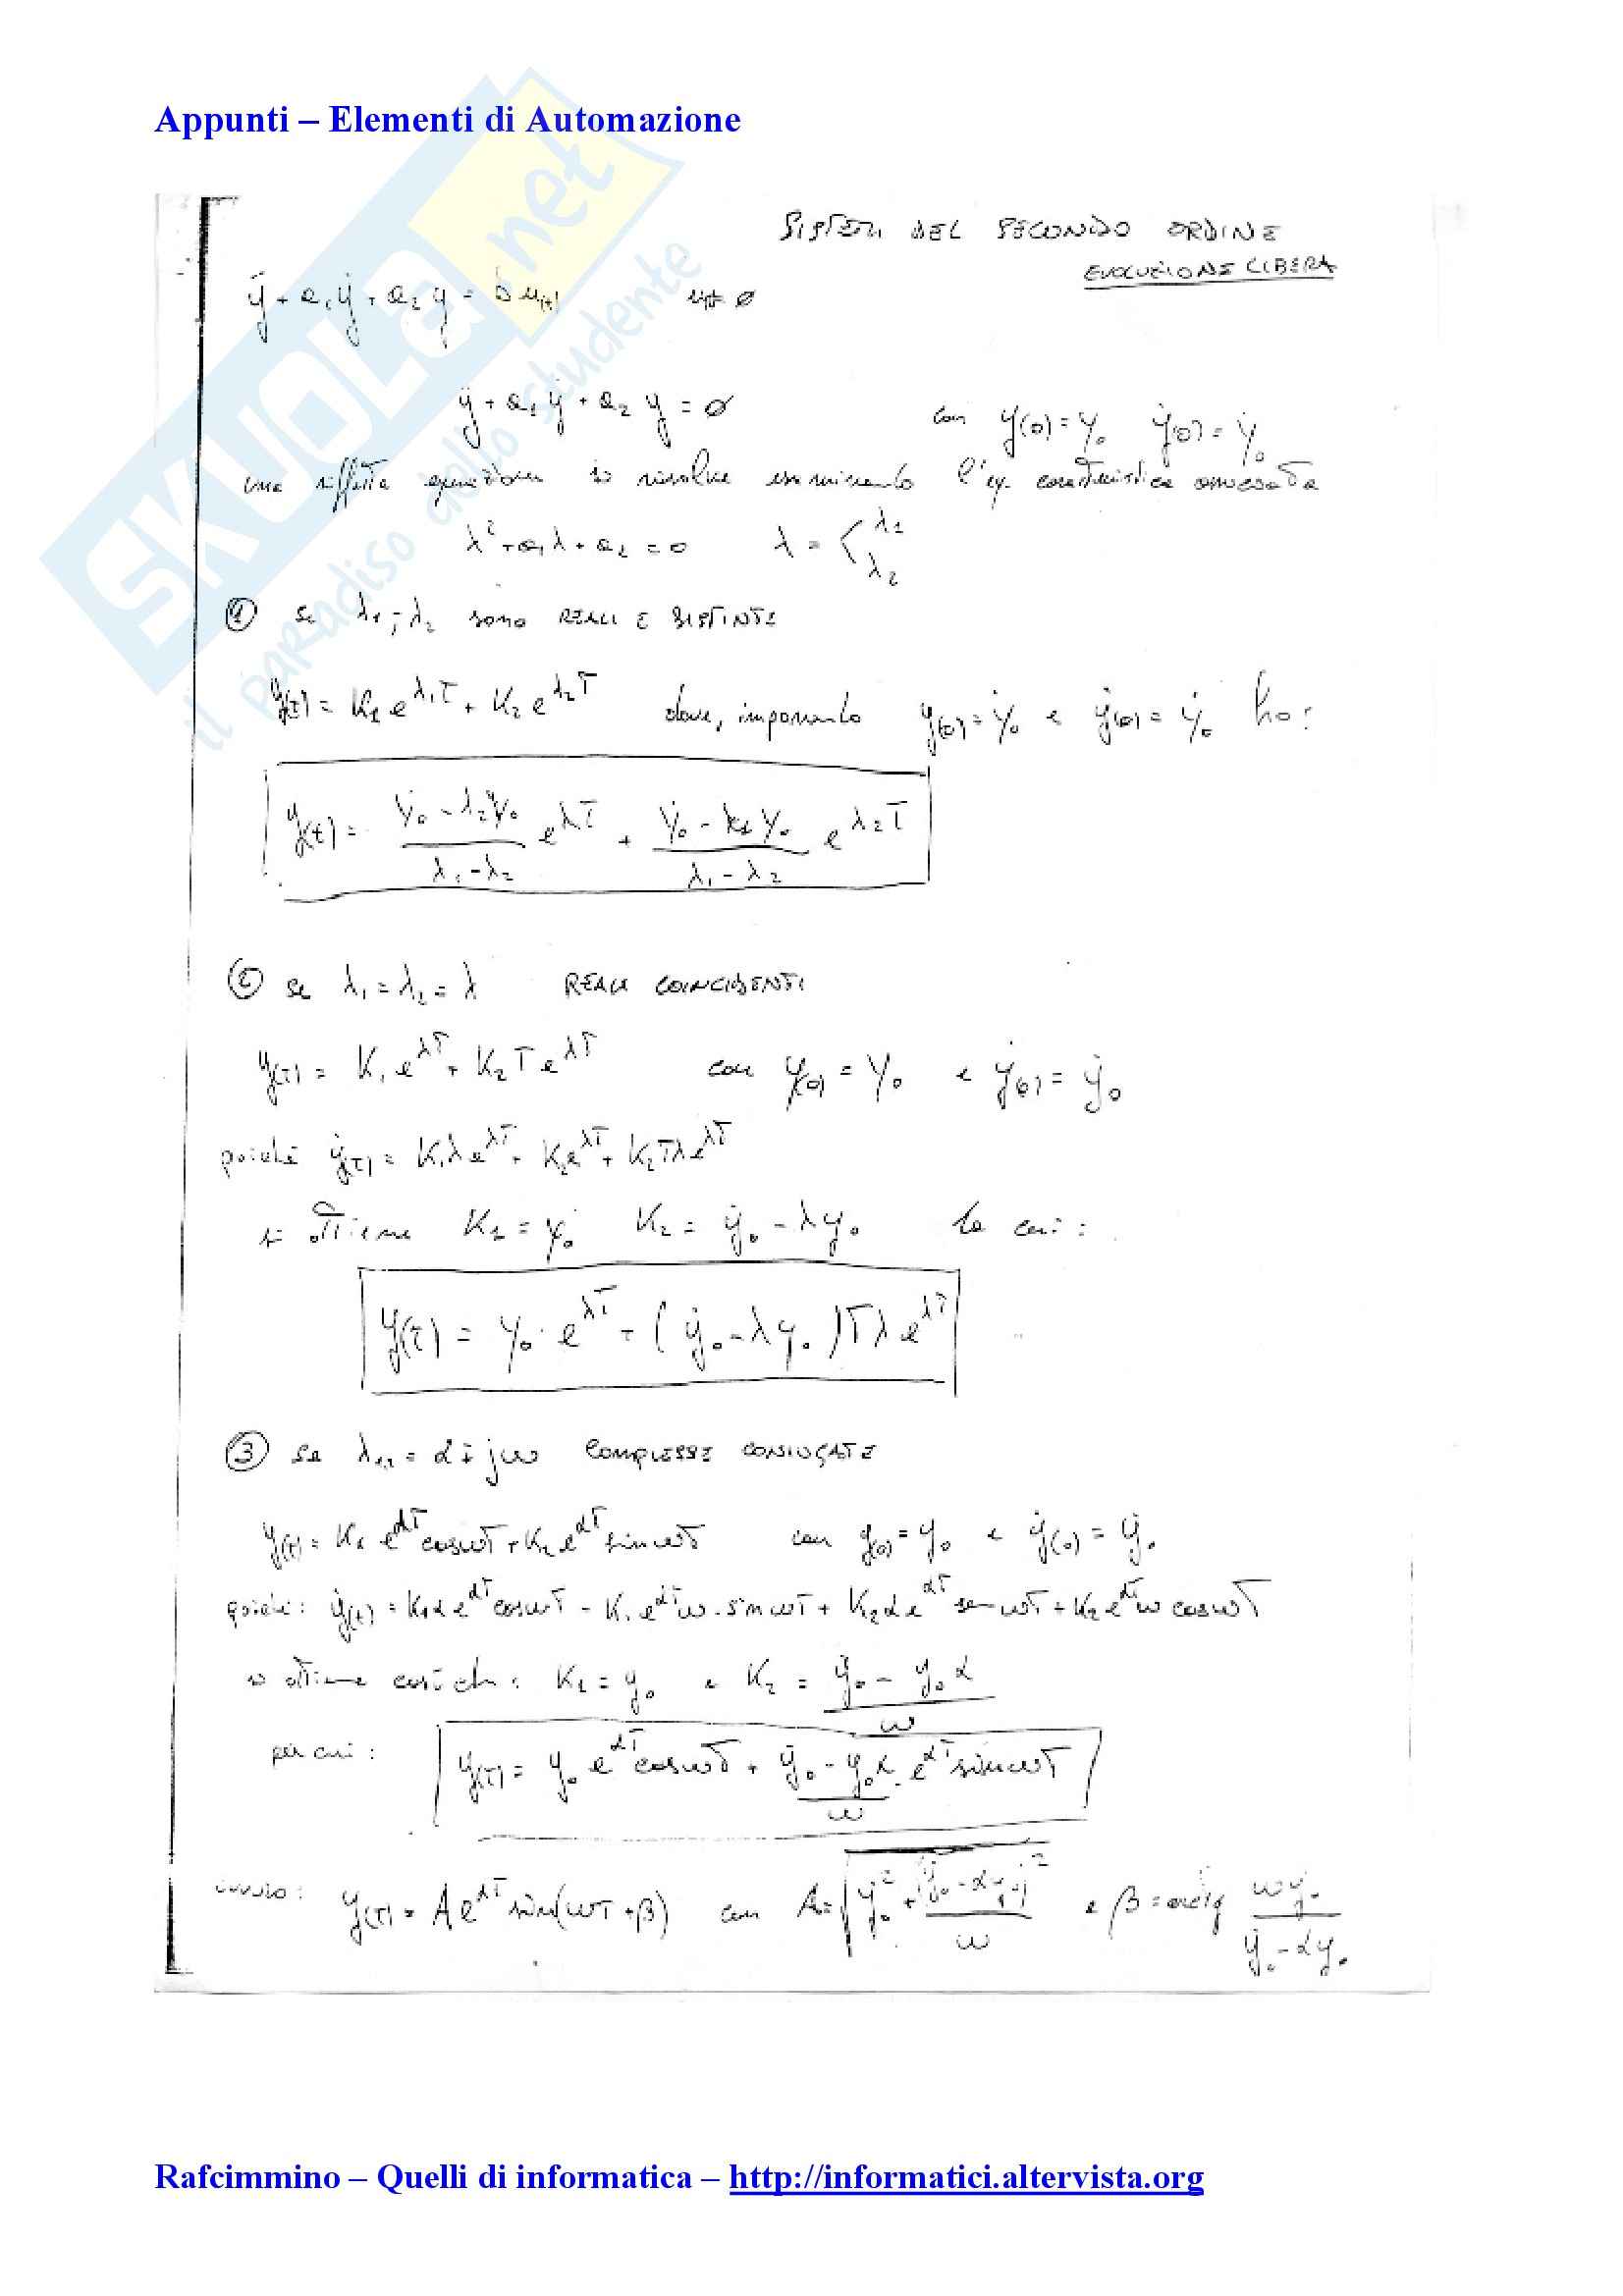 Appunti – Elementi di Automazione
SKUOLA.net
il paradiso dello studente
SISTEMI DEL SECONDO ORDINE
EVOLUZIONE LIBERA
ÿ + a₁ẏ + a₂y = b u(t)
ÿ + a₁ẏ + a₂ y = ∅ con y(0) = y₀ ẏ(0) = ẏ₀
una siffatta equazione si risolve esaminando l'eq. caratteristica associata
λ² + a₁λ + a₂ = 0 λ = < λ₁ λ₂
① se λ₁; λ₂ sono REALI E DISTINTE
y(t) = K₁ e^λ₁T + K₂ e^λ₂T dove, imponendo y(0) = y₀ e ẏ(0) = ẏ₀ ho:
y(t) = (ẏ₀ - λ₂y₀)/(λ₁-λ₂) e^λT + (ẏ₀ - λ₁y₀)/(λ₁-λ₂) e^λ₂T
② se λ₁ = λ₂ = λ REALI COINCIDENTI
y(T) = K₁ e^λT + K₂ T e^λT con y(0) = y₀ e ẏ(0) = ẏ₀
poiché ẏ(T) = K₁λe^λT + K₂e^λT + K₂Tλe^λT
si ottiene K₁ = y₀ K₂ = ẏ₀ - λy₀ la cui:
y(t) = y₀ · e^λT + (ẏ₀ - λy₀)Tλe^λT
③ se λ₁,₂ = α ± jω COMPLESSE CONIUGATE
y(t) = K₁ e^αT cosωT + K₂ e^αT sinωT con y(0) = y₀ e ẏ(0) = ẏ₀
poiché: ẏ(t) = K₁αe^αT cosωT - K₁e^αTω·sinωT + K₂αe^αT senωT + K₂e^αTω cosωT
si ottiene così che: K₁ = y₀ e K₂ = (ẏ₀ - y₀α)/ω
per cui: y(T) = y₀ e^αT cosωT + (ẏ₀ - y₀α)/ω · e^αT sinωT
ovvero: y(T) = A e^αT sin(ωT + β) con A = √(y₀² + (ẏ₀ - αy₀)²/ω) e β = arctg ωy₀/(ẏ₀ - αy₀)
Rafcimmino – Quelli di informatica – http://informatici.altervista.org